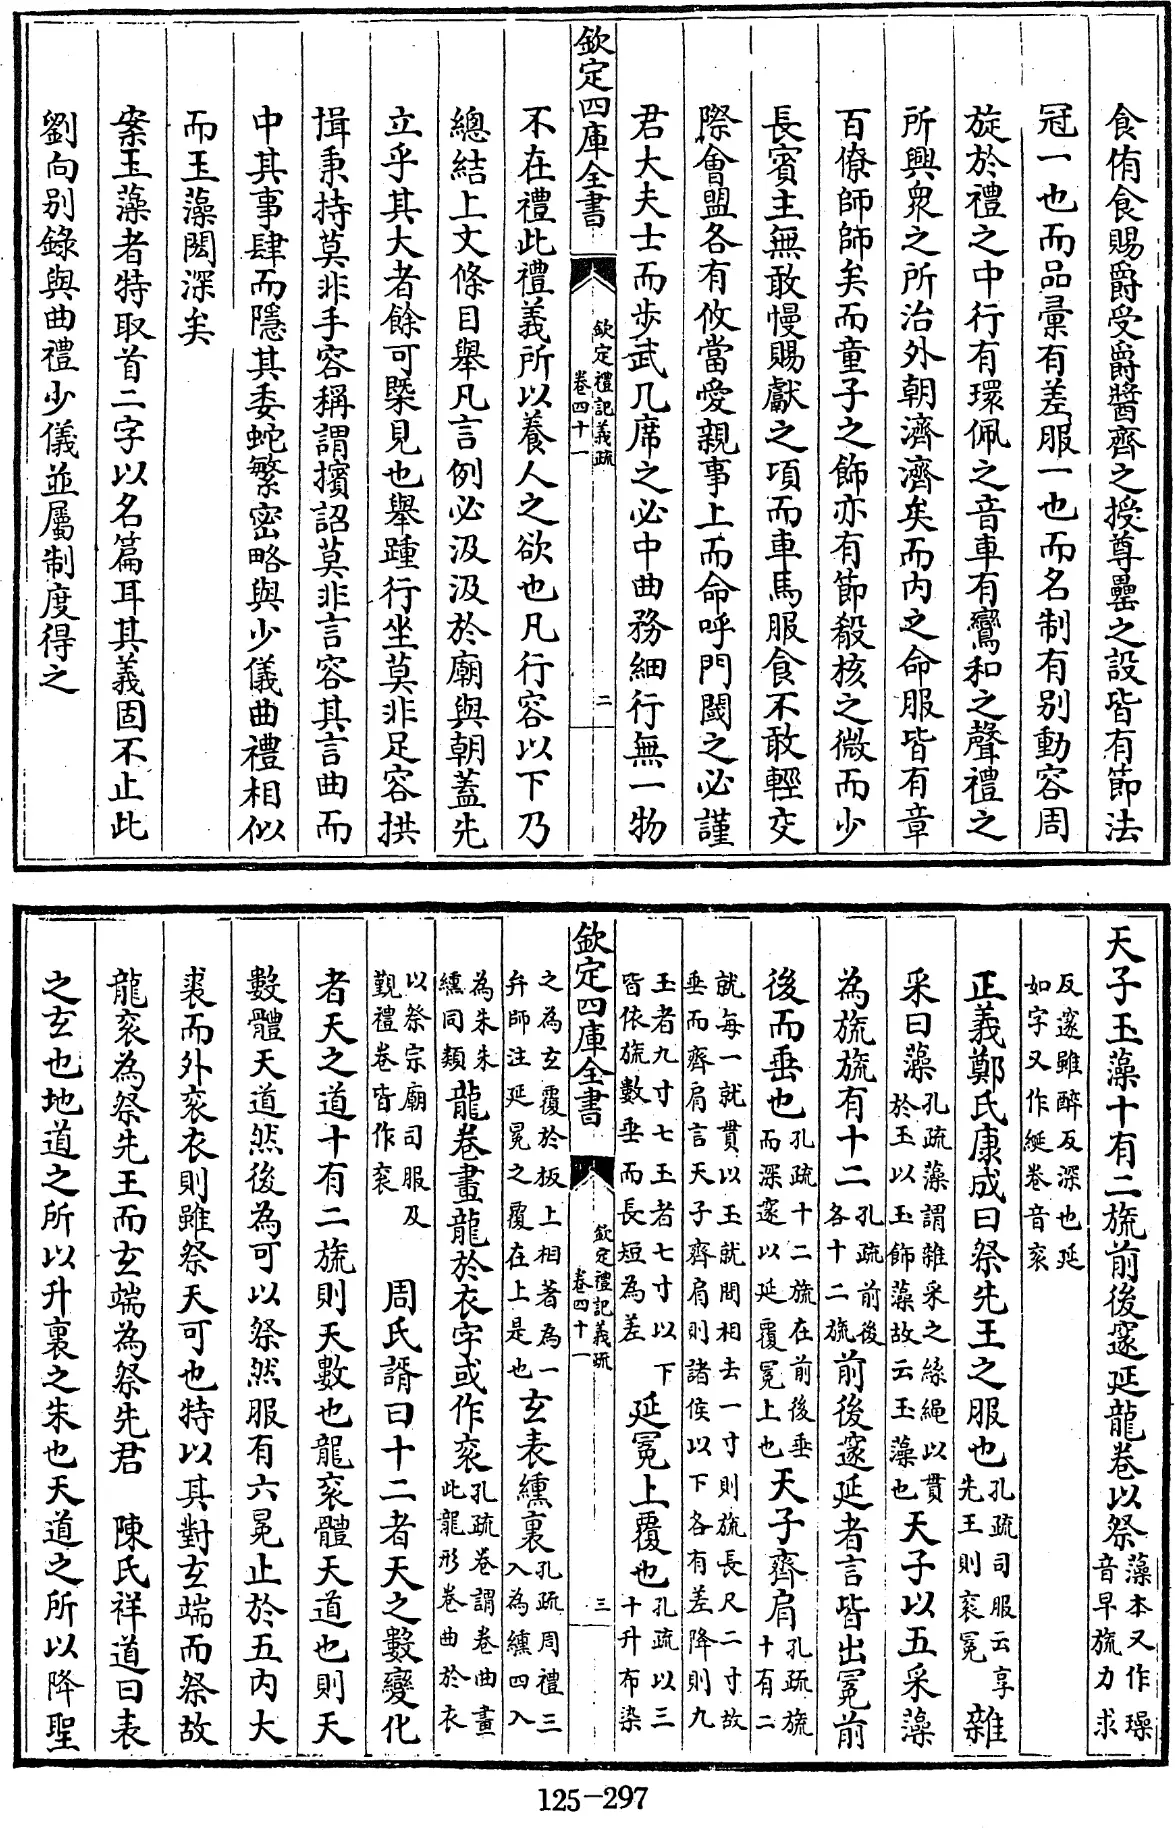 食侑食賜爵受爵醬齊之授尊罍之設皆有節法
冠一也而品彙有差服一也而名制有别動容周
旋於禮之中行有環佩之音車有鸞和之聲禮之
所興衆之所治外朝濟濟矣而内之命服皆有章
百僚師師矣而童子之飾亦有節殽核之微而少
長賓主無敢慢賜獻之頃而車馬服食不敢輕交
際會盟各有攸當愛親事上而命呼門闑之必謹
君大夫士而歩武几席之必中曲務細行無一物
欽定四庫全書
欽定禮記義疏
卷四十一
二
不在禮此禮義所以養人之欲也凡行容以下乃
總結上文條目舉凡言例必汲汲於廟與朝蓋先
立乎其大者餘可槩見也舉踵行坐莫非足容拱
揖秉持莫非手容稱謂擯詔莫非言容其言曲而
中其事肆而隱其委蛇繁密略與少儀曲禮相似
而玉藻閎深矣
案玉藻者特取首二字以名篇耳其義固不止此
劉向别錄與曲禮少儀並屬制度得之
天子玉藻十有二旒前後邃延龍卷以祭藻本又作璪音早旒力求
反邃雖醉反深也延如字又作綖卷音衮
正義鄭氏康成曰祭先王之服也孔疏司服云享先王則衮冕雜
采曰藻孔疏藻謂雜采之絲繩以貫於玉以玉飾藻故云玉藻也天子以五采藻
為旒旒有十二孔疏前後各十二旒前後邃延者言皆出冕前
後而垂也孔疏十二旒在前後垂而深邃以延覆冕上也天子齊肩孔疏旒十有二
就每一就貫以玉就間相去一寸則旒長尺二寸故垂而齊肩言天子齊肩則諸侯以下各有差降則九
玉者九寸七玉者七寸以下皆依旒數垂而長短為差延冕上覆也孔疏以三十升布染
欽定四庫全書
欽定禮記義疏
卷四十一
三
之為玄覆於板上相著為一弁師注延冕之覆在上是也玄表纁裏孔疏周禮三入為纁四入
為朱朱纁同類龍卷畫龍於衣字或作衮孔疏卷謂卷曲畫此龍形卷曲於衣
以祭宗廟司服及覲禮卷皆作衮 周氏諝曰十二者天之數變化
者天之道十有二旒則天數也龍衮體天道也則天
數體天道然後為可以祭然服有六冕止於五内大
裘而外衮衣則雖祭天可也特以其對玄端而祭故
龍衮為祭先王而玄端為祭先君 陳氏祥道曰表
之玄也地道之所以升裏之朱也天道之所以降聖
125-297